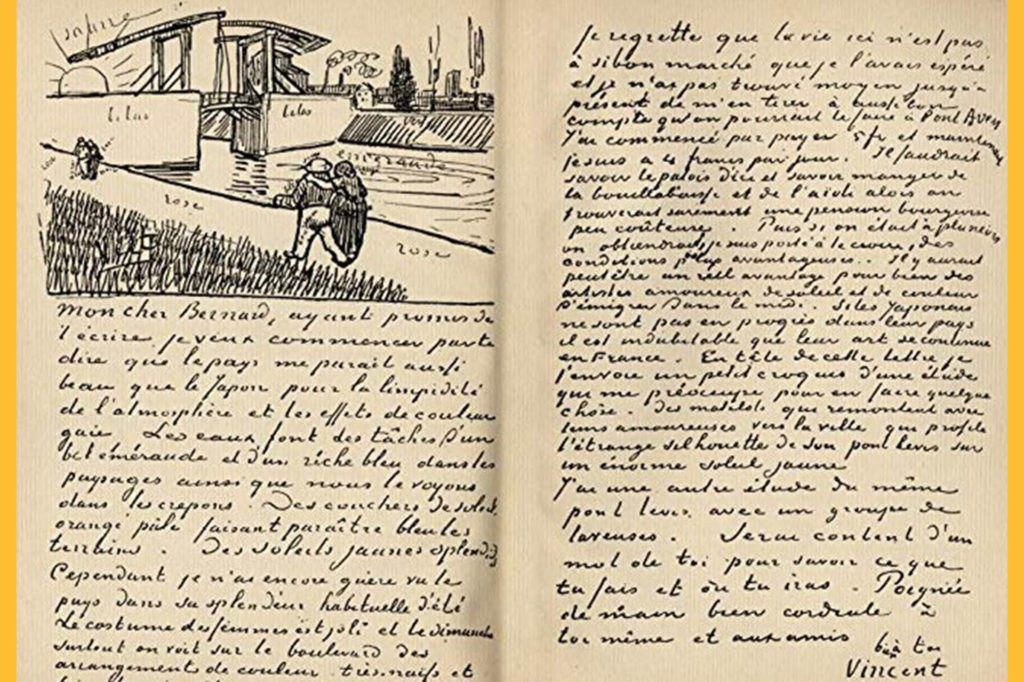 jaune
lilas
lilas
émeraude
rose
rose
Mon cher Bernard, ayant promis de
t'écrire je veux commencer par te
dire que le pays me parait aussi
beau que le Japon pour la limpidité
de l'atmosphère et les effets de couleur
gaie Les eaux font des tâches d'un
bel eméraude et d'un riche bleu dans les
paysages ainsi que nous le voyons
dans les crepons. Des couchers de soleil
orangé pâle faisant paraître bleu les
terrains. Des soleils jaunes splendides
Cependant je n'ai encore guère vu le
pays dans sa splendeur habituelle d'été
Le costume des femmes est joli et le dimanche
surtout on voit sur le boulevard des
arrangements de couleur très naïfs et
je regrette que la vie ici n'est pas
à si bon marché que je l'avais espéré
et je n'ai pas trouvé moyen jusqu'à
présent de m'en tirer à aussi bon
compte qu'on pourrait le faire à Pont Aven
J'ai commencé par payer 5 fr et maintenant
je suis à 4 francs par jour. Il faudrait
savoir le patois d'ici et savoir manger de
la bouillabaisse et de l'aïoli alors on
trouverait surement une pension bourgeoise
peu coûteuse. Puis si on était à plusieurs
on obtiendrait je suis porté à le croire, des
conditions plus avantageuses. Il y aurait
peut être un réel avantage pour bien des
artistes amoureux de soleil et de couleur
d'émigrer dans le midi. Si les Japonais
ne sont pas en progrès dans leur pays
il est indubitable que leur art se continue
en France. En tête de cette lettre je
t'envoie un petit croquis d'une étude
qui me préoccupe pour en faire quelque
chose. Des matelots qui remontent avec
leurs amoureuses vers la ville qui profile
l'étrange silhouette de son pont levis sur
un énorme soleil jaune
J'ai une autre étude du même
pont levis avec un groupe de
laveuses. Serai content d'un
mot de toi pour savoir ce que
tu fais et où tu iras. Poignée
de main bien cordiale à
toi même et aux amis
bien à toi
Vincent